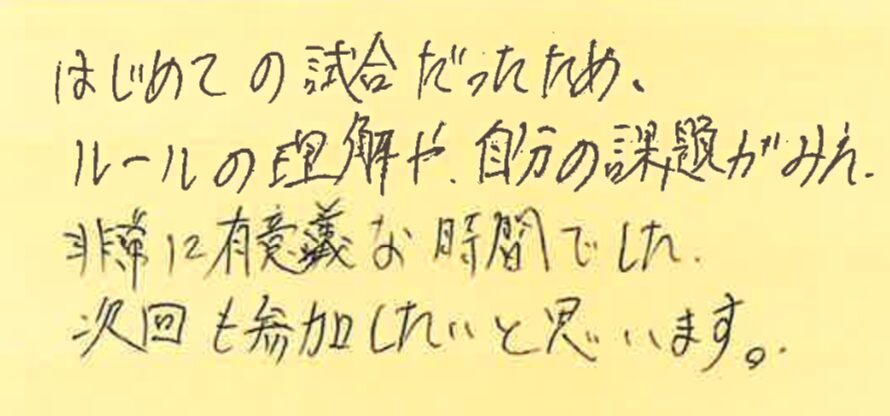 はじめての試合だったため、
ルールの理解や、自分の課題がみえ、
非常に有意義な時間でした。
次回も参加したいと思います。